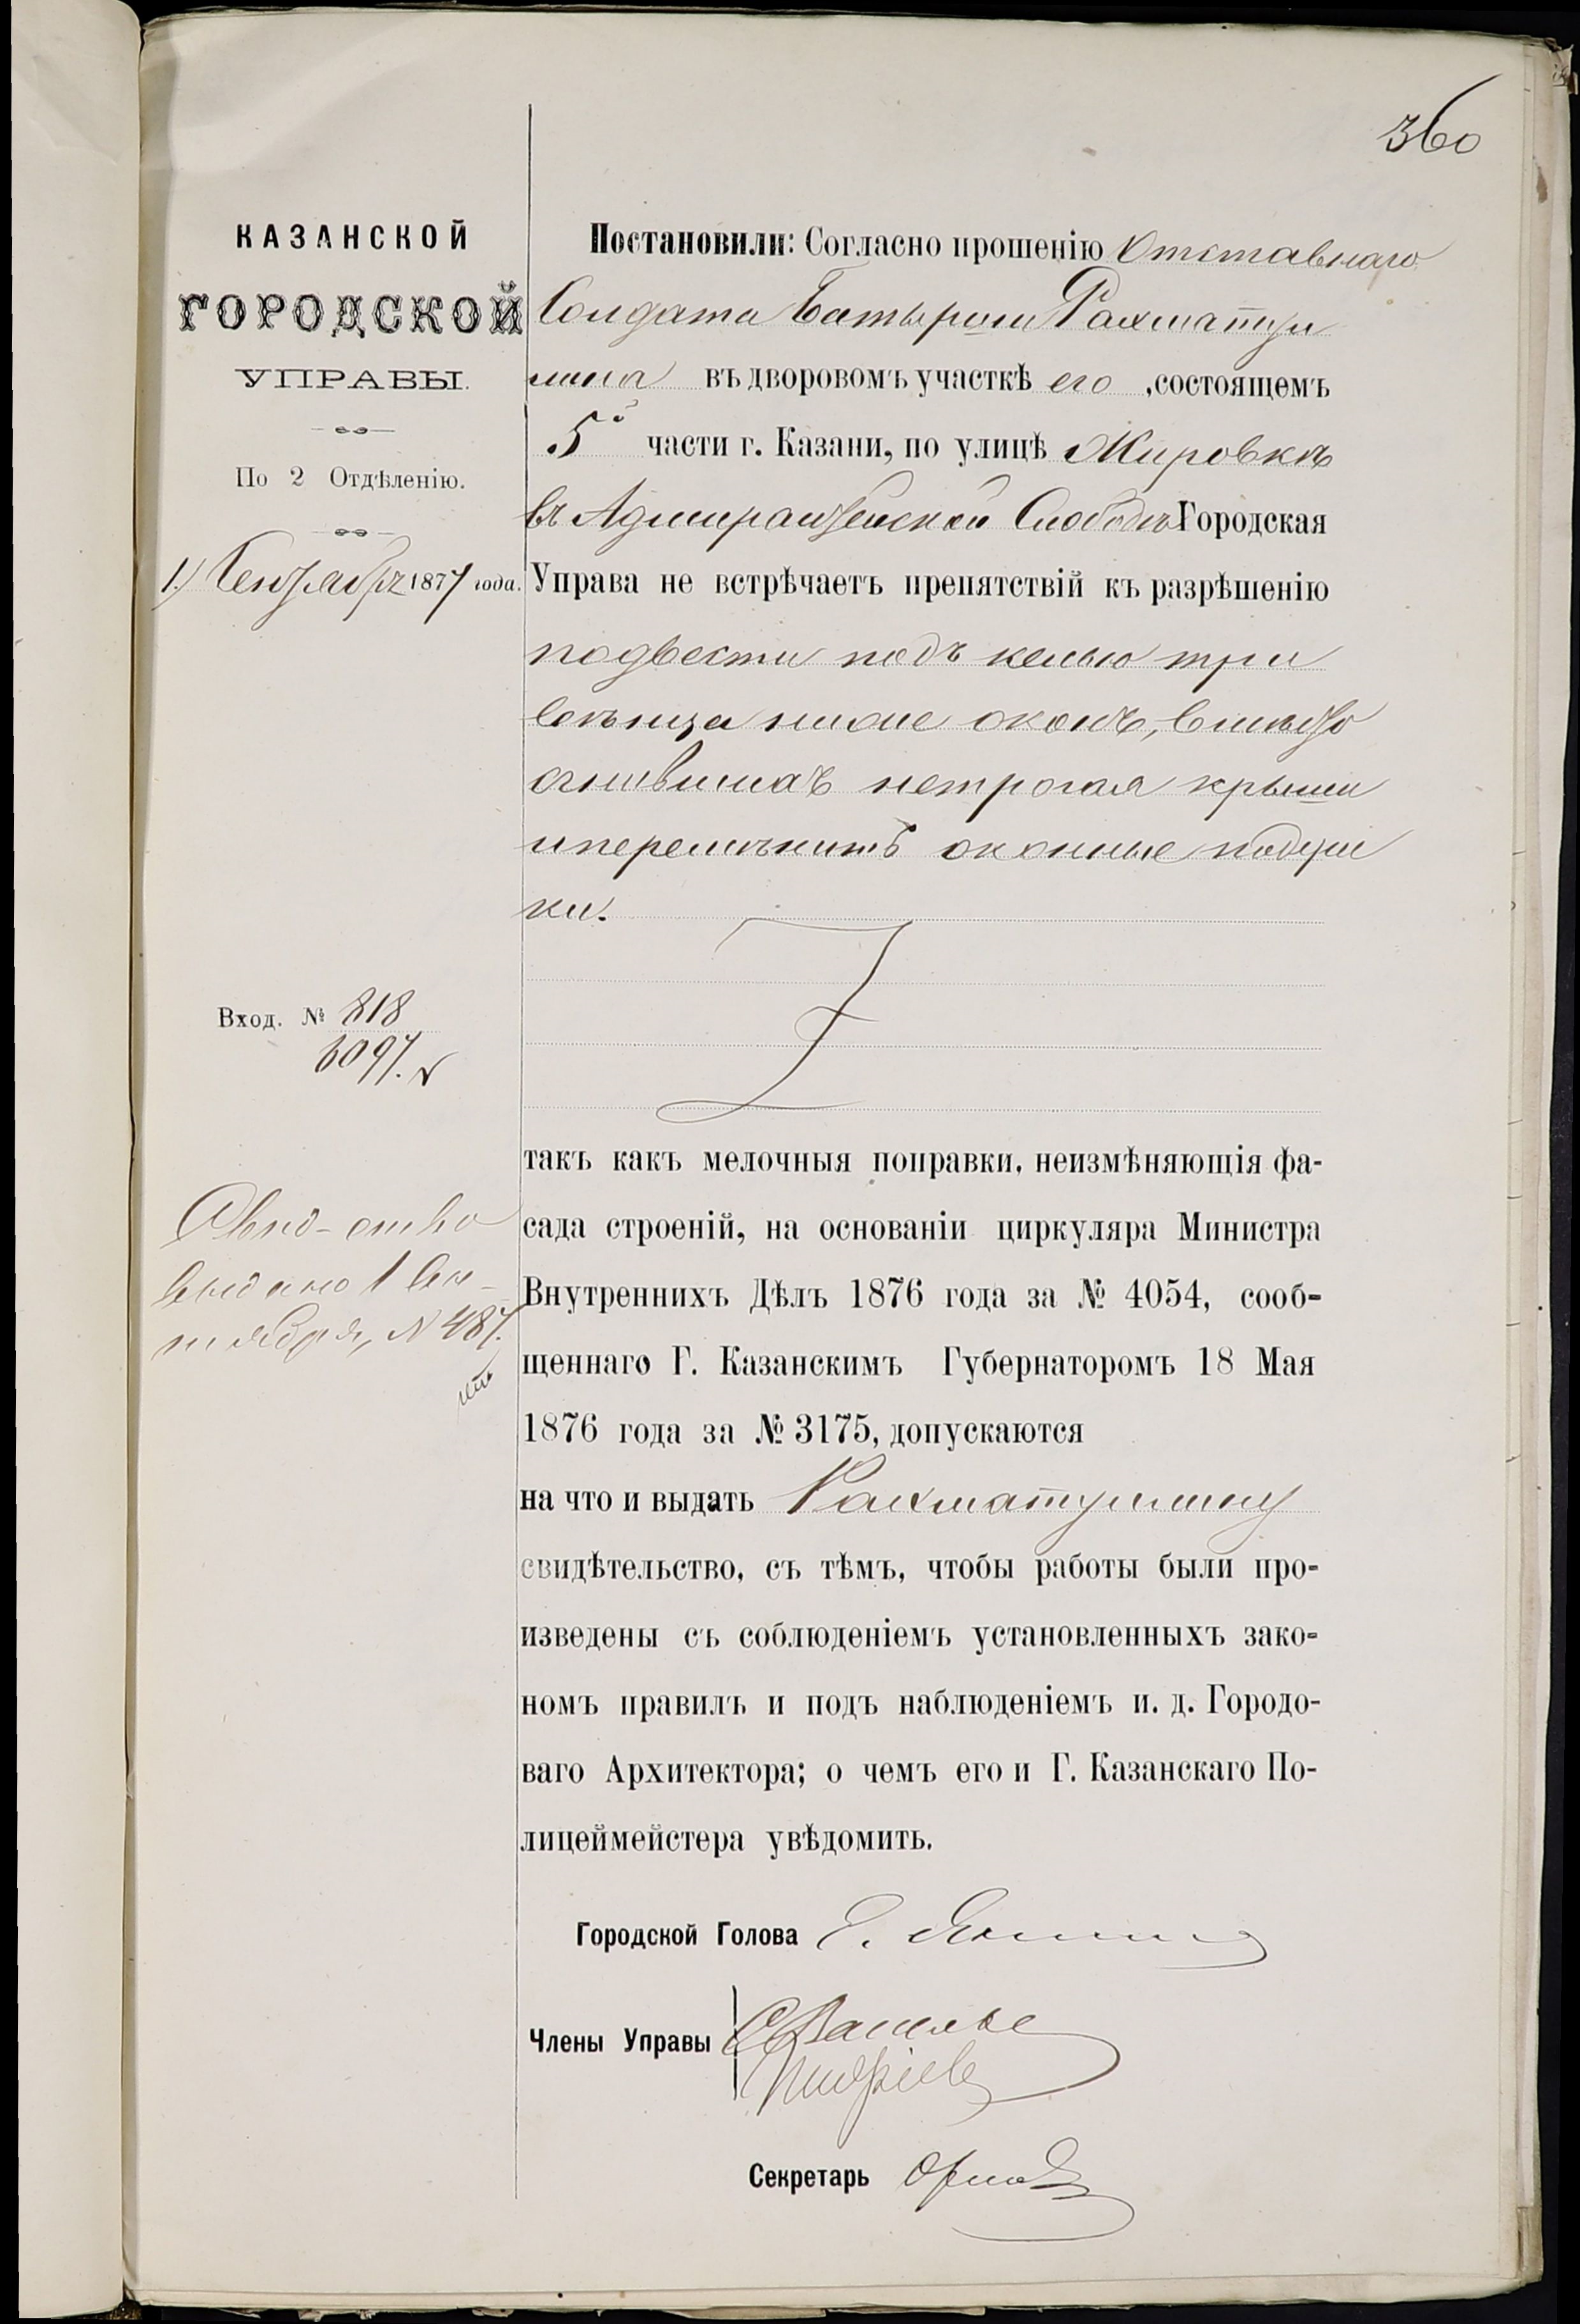 360
КАЗАНСКОЙ
ГОРОДСКОЙ
УПРАВЫ.
По 2 Отдѣленію.
1.) Сентября 1877 года.
Вход. № 818
6097.
Свид-ство
выдано 1 Сен-
тября, № 487.
Постановили: Согласно прошенію Отставнаго
Солдата Батырши Рахматул
лина въ дворовомъ участкѣ его, состоящемъ
5й части г. Казани, по улицѣ Жировкѣ
въ Адмиралтейской Слободѣ Городская
Управа не встрѣчаетъ препятствій къ разрѣшенію
подвести подъ келью три
венца ниже оконъ, вмѣсто
сгнившихъ нетрогая крыши
иперемѣнить оконные подуш
ки.
такъ какъ мелочныя поправки, неизмѣняющія фа-
сада строеній, на основаніи циркуляра Министра
Внутреннихъ Дѣлъ 1876 года за № 4054, сооб-
щеннаго Г. Казанскимъ Губернаторомъ 18 Мая
1876 года за № 3175, допускаются
на что и выдать Рахматуллину
свидѣтельство, съ тѣмъ, чтобы работы были про-
изведены съ соблюденіемъ установленныхъ зако-
номъ правилъ и подъ наблюденіемъ и. д. Городо-
ваго Архитектора; о чемъ его и Г. Казанскаго По-
лицеймейстера увѣдомить.
Городской Голова
Члены Управы
Секретарь